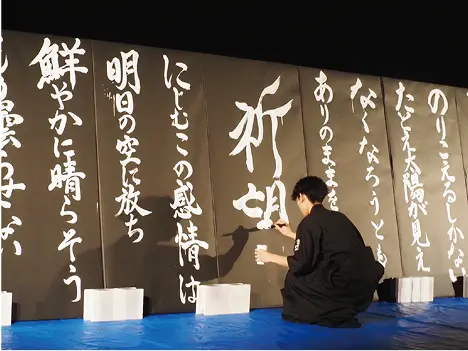 のりこえるしかない
たとえ太陽が見え
なくなろうとも
ありのままを
祈望
にじむこの感情は
明日の空に放ち
鮮やかに晴らそう